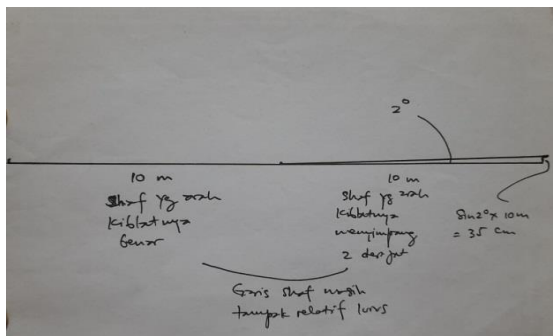 2°
10 m
Shaf yg arah
kiblatnya
benar
10 m
shaf yg arah
kiblatnya
menyimpang
2 derajat
Sin2° x 10m
= 35 cm
Garis shaf masih
tampak relatif lurus